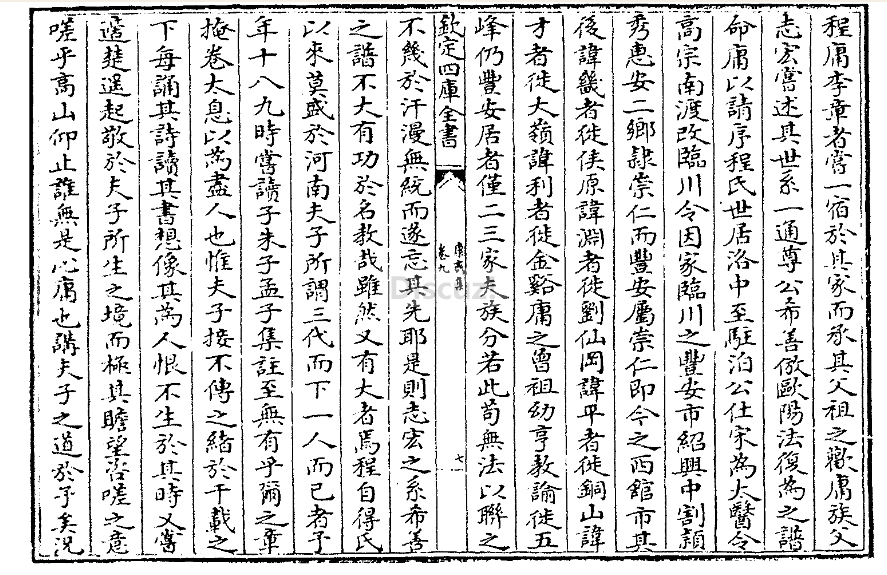 程庸李章者嘗一宿於其家而承其父祖之歡庸族父
志宏嘗述其世系一通尊公希善倣歐陽法復為之譜
命庸以請序程氏世居洛中至駐泊公仕宋為太醫令
高宗南渡改臨川令因家臨川之豐安市紹興中割潁
秀惠安二鄉隸崇仁而豐安屬崇仁即今之西館市其
後諱畿者徙侯原諱淵者徙劉仙岡諱平者徙銅山諱
才者徙大嶺諱利者徙金谿庸之曾祖幼亨教諭徙五
峰仍豐安居者僅二三家夫族分若此苟無法以聯之
欽定四庫全書
康齋集
卷九
七
不幾於汗漫無統而遂忘其先耶是則志宏之系希善
之譜不大有功於名教哉雖然又有大者焉程自得氏
以來莫盛於河南夫子所謂三代而下一人而已者予
年十八九時嘗讀子朱子孟子集註至無有乎爾之章
掩卷太息以為盡人也惟夫子接不傳之緒於千載之
下每誦其詩讀其書想像其為人恨不生於其時又嘗
適楚遥起敬於夫子所生之境而極其瞻望咨嗟之意
嗟乎高山仰止誰無是心庸也講夫子之道於予矣況